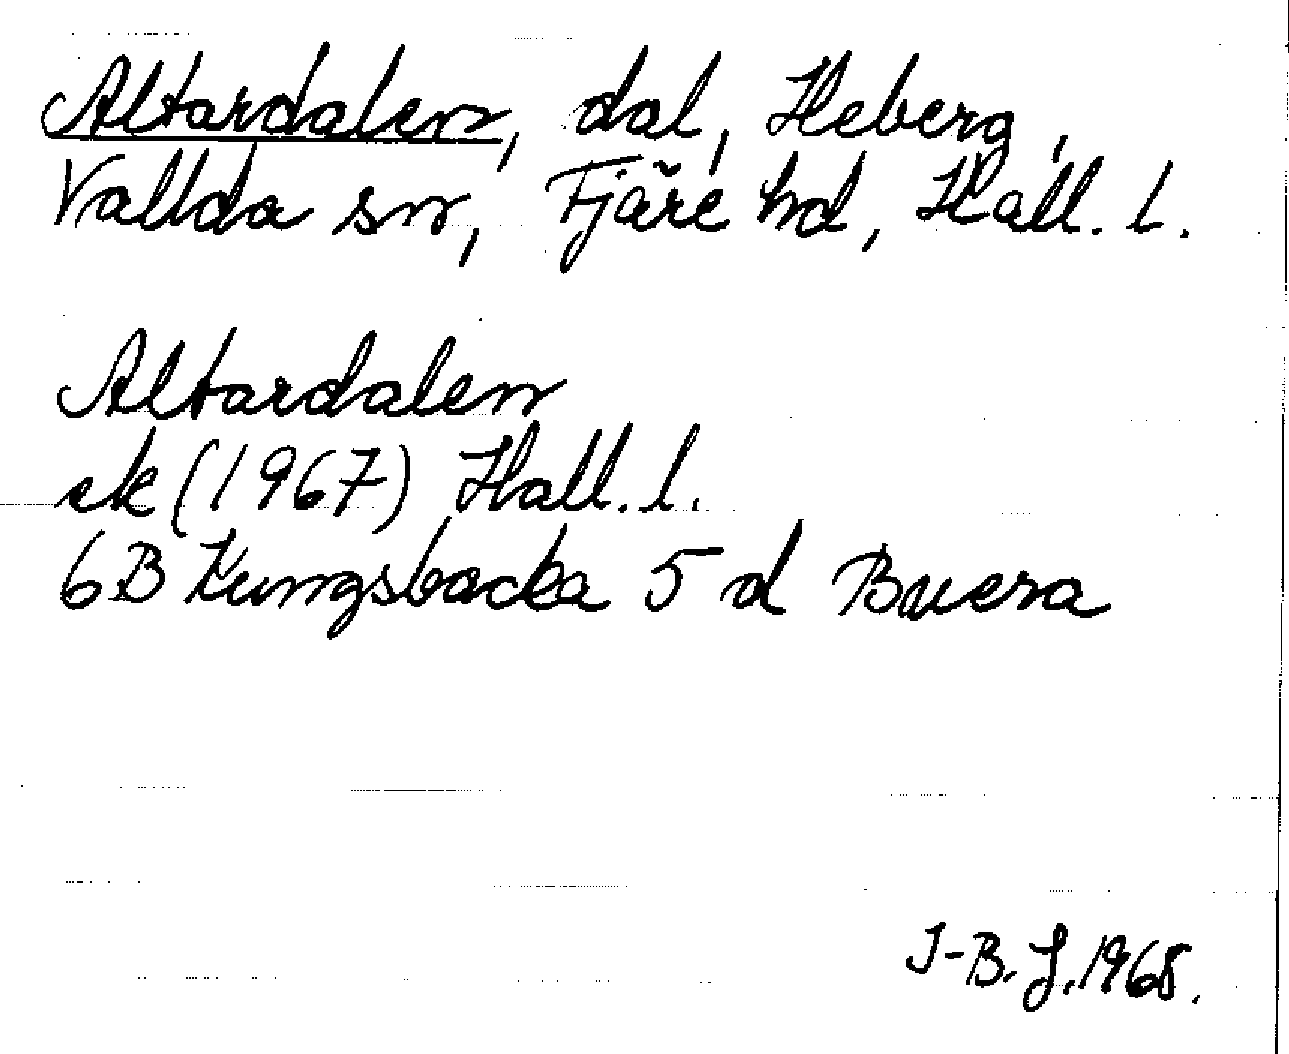 Altardalen, dal, Heberg,
Vallda sn, Fjäre hd, Hall. l.
Altardalen
ek (1967) Hall. l.
6B Kungsbacka 5 d Buera
J-B. J. 1968.